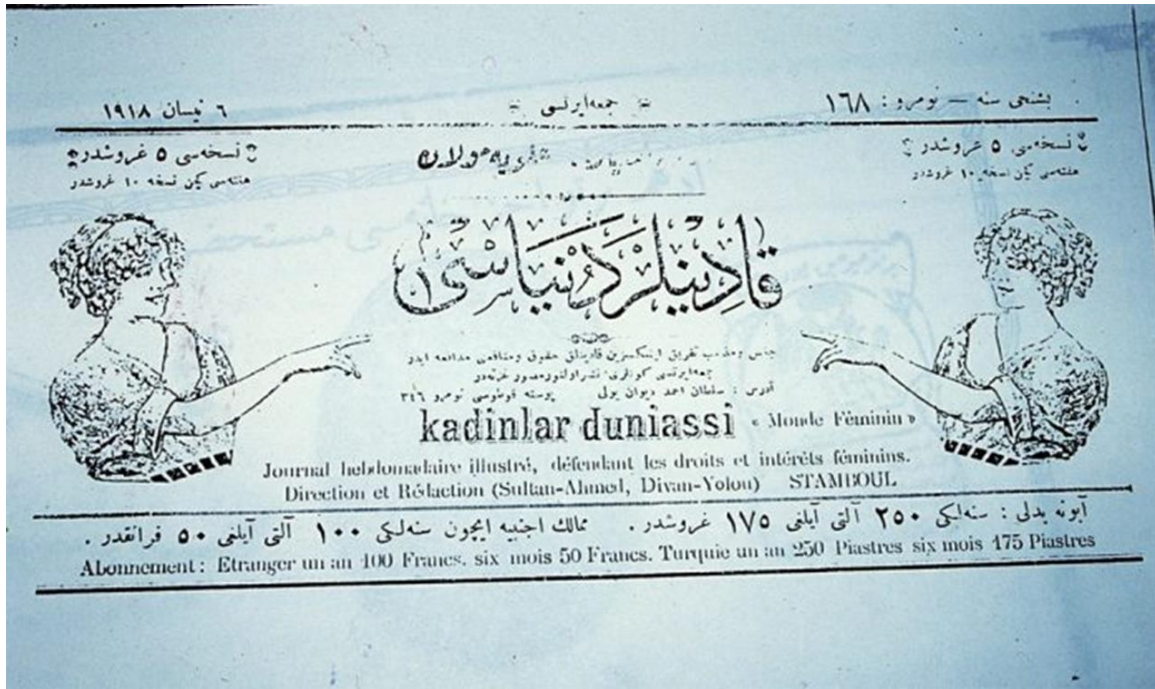 بشنجی سنه — نومرو : ١٦٨
جمعه ایرتسی
٦ نیسان ١٩١٨
نسخه‌سی ٥ غروشدر
هفته‌سی کچن نسخه ١٠ غروشدر
نسخه‌سی ٥ غروشدر
هفته‌سی کچن نسخه ١٠ غروشدر
قادینلر دنیاسی
جنس و مذهب تفریق ایتمکسزین قادینلق حقوق و منافعنی مدافعه ایدر
جمعه ایرتسی کونلری نشر اولنور مصور غزته‌در
آدرس : سلطان احمد دیوان یولی پوسته قوطوسی نومرو ٣٤٦
kadinlar duniassi « Monde Féminin »
Journal hebdomadaire illustré, défendant les droits et intérêts féminins.
Direction et Rédaction (Sultan-Ahmed, Divan-Yolou) STAMBOUL
آبونه بدلی : سنه‌لکی ٢٥٠ آلتی آیلغی ١٧٥ غروشدر . ممالك اجنبیه ایچون سنه‌لکی ١٠٠ آلتی آیلغی ٥٠ فرانقدر .
Abonnement : Etranger un an 100 Francs. six mois 50 Francs. Turquie un an 250 Piastres six mois 175 Piastres